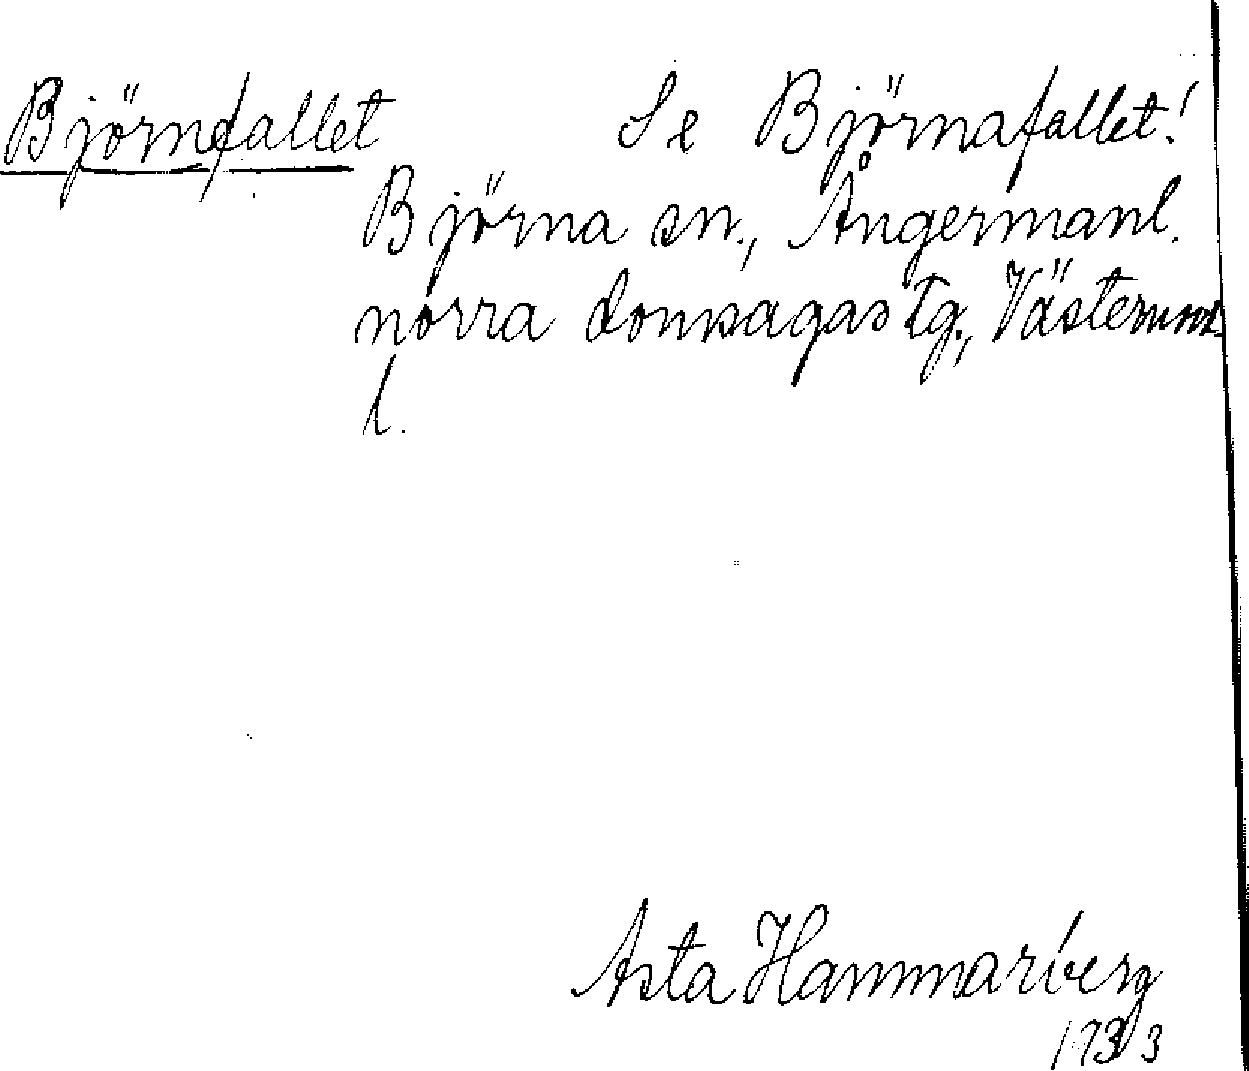 Björnefallet Se Björnafallet!
Björna sn., Ångermanl.
norra domsagas tg., Västernorr
l.
Asta Hammarberg
1933